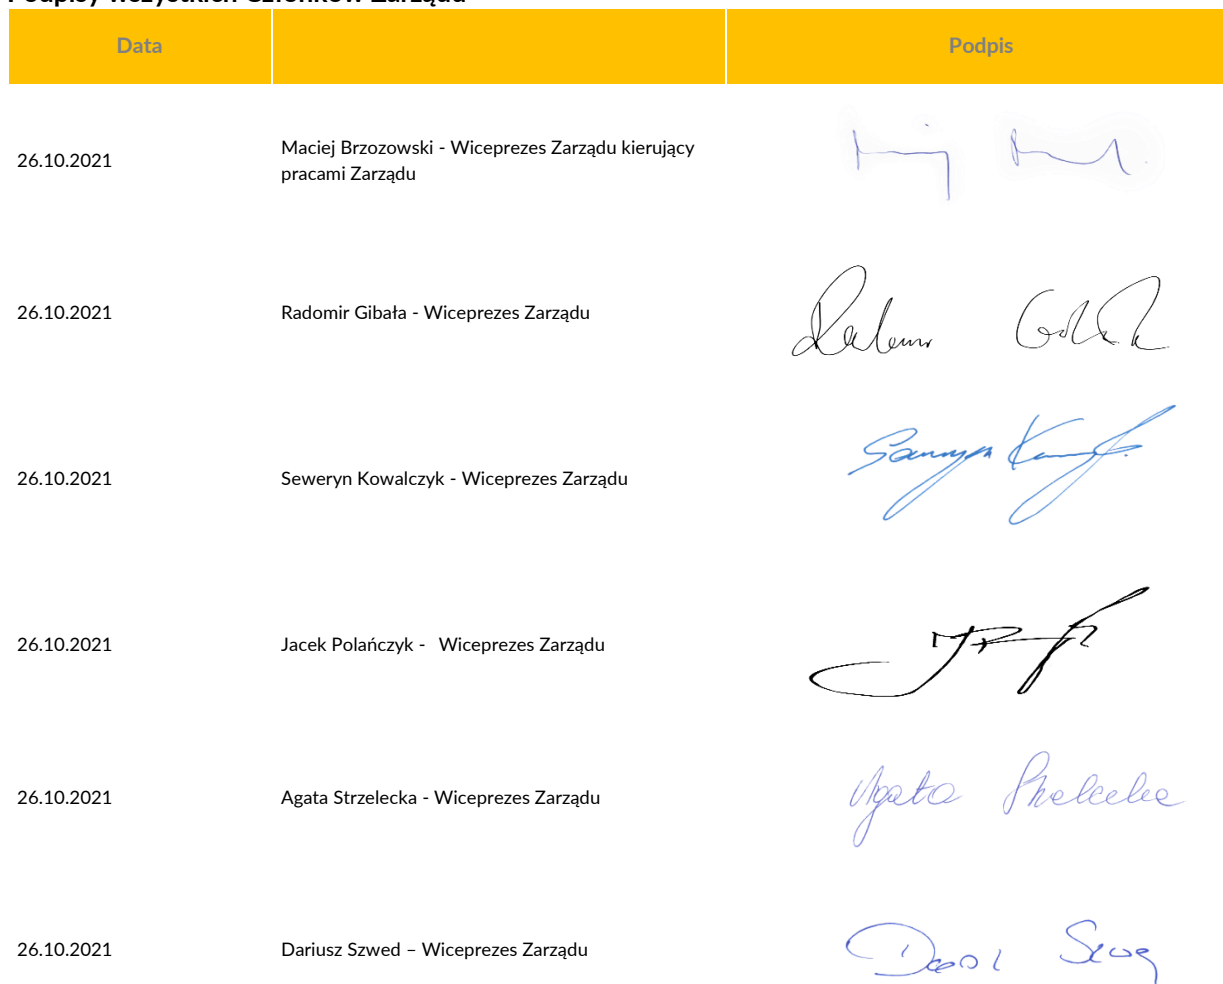 Podpisy wszystkich Członków Zarządu
Data Podpis
26.10.2021 Maciej Brzozowski - Wiceprezes Zarządu kierujący
pracami Zarządu
26.10.2021 Radomir Gibała - Wiceprezes Zarządu
26.10.2021 Seweryn Kowalczyk - Wiceprezes Zarządu
26.10.2021 Jacek Polańczyk - Wiceprezes Zarządu
26.10.2021 Agata Strzelecka - Wiceprezes Zarządu
Agata Strzelecka
26.10.2021 Dariusz Szwed – Wiceprezes Zarządu